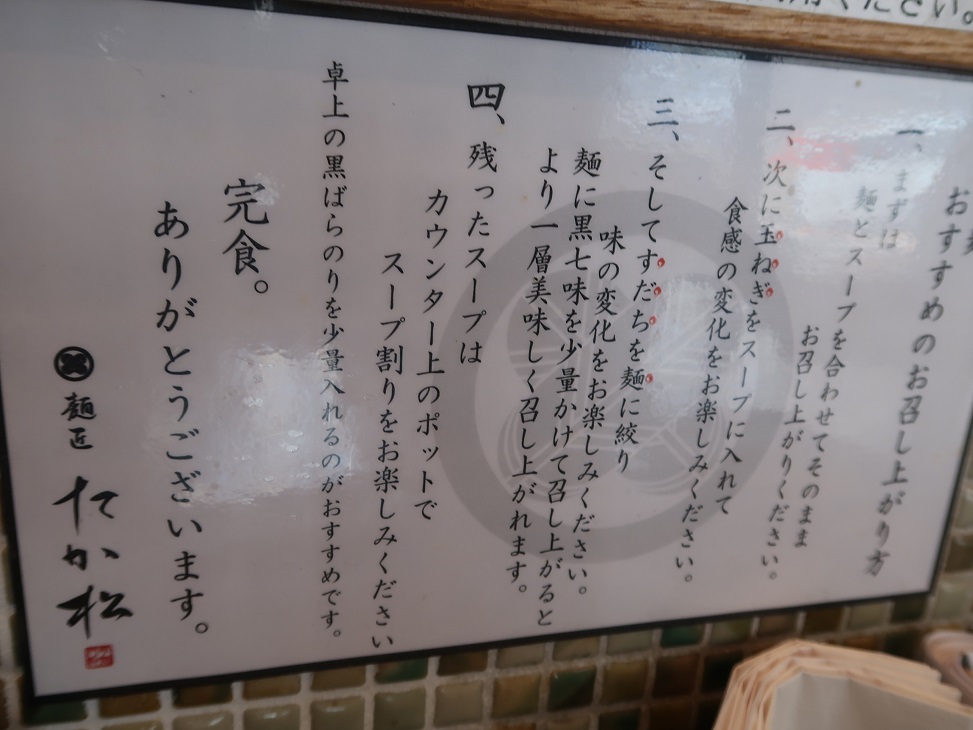 ください。
おすすめのお召し上がり方
一、まずは
麺とスープを合わせてそのまま
お召し上がりください。
二、次に玉ねぎをスープに入れて
食感の変化をお楽しみください。
三、そしてすだちを麺に絞り
味の変化をお楽しみください。
麺に黒七味を少量かけて召し上がると
より一層美味しく召し上がれます。
四、残ったスープは
カウンター上のポットで
スープ割りをお楽しみください
卓上の黒ばらのりを少量入れるのがおすすめです。
完食。
ありがとうございます。
麺匠 たか松